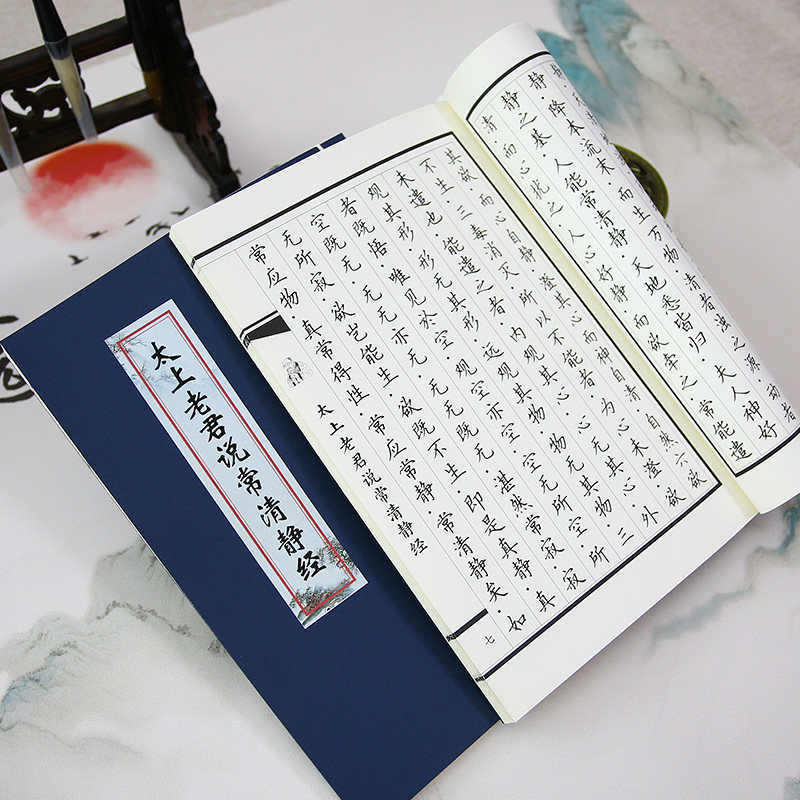 静·降本流末·而生万物·清者浊之源·动者
静之基·人能常清静·天地悉皆归·夫人神好
清而心扰之·人心好静而欲牵之·常能遣
其欲而心自静·澄其心而神自清·自然六欲
不生·三毒消灭·所以不能者·为心未澄·欲
未遣也·能遣之者·内观其心·心无其心·外
观其形·形无其形·远观其物·物无其物·三
者既悟·唯见於空·观空亦空·空无所空·所
空既无·无无亦无·无无既无·湛然常寂·寂
无所寂·欲岂能生·欲既不生·即是真静·真
常应物·真常得性·常应常静·常清静矣·如
太上老君说常清静经
七
太上老君说常清静经